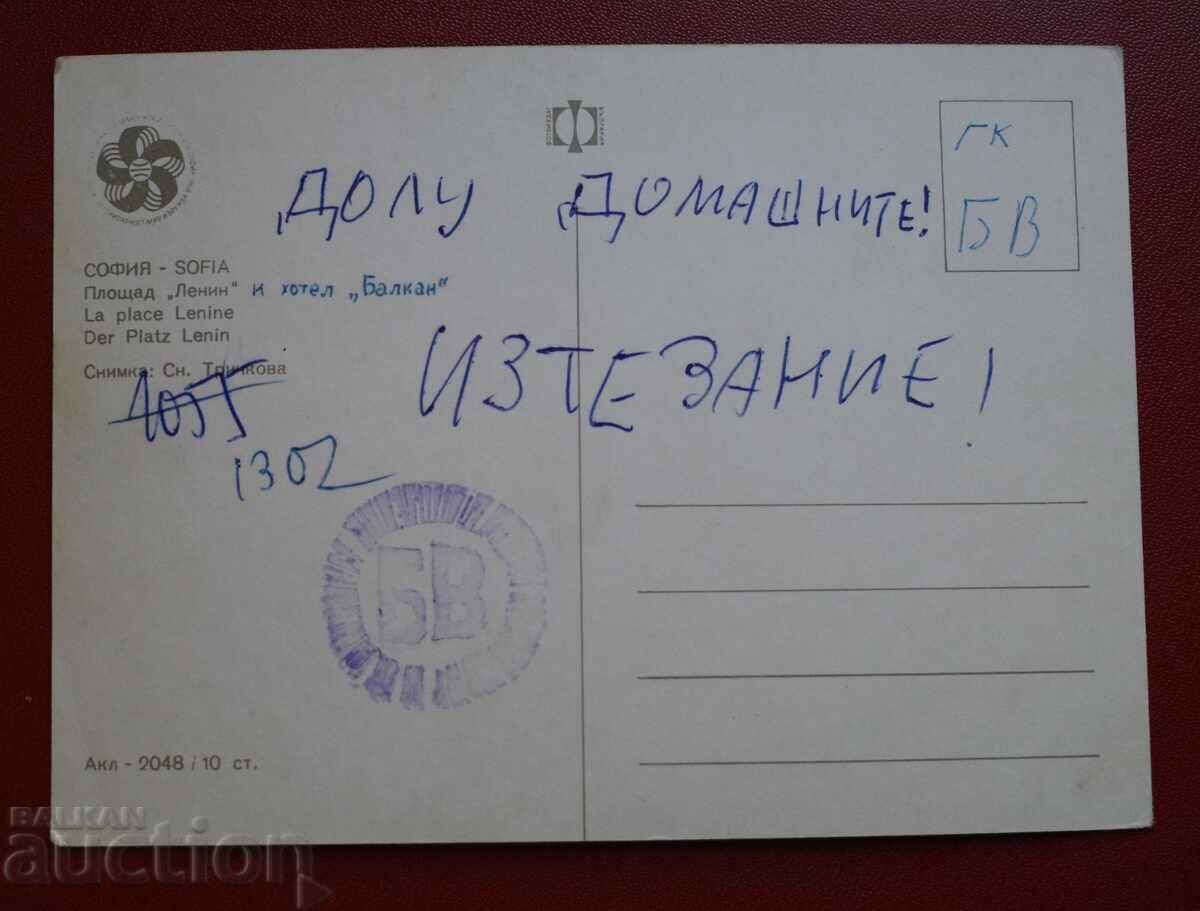 ДОЛУ ДОМАШНИТЕ!
ГК
БВ
СОФИЯ - SOFIA
Площад „Ленин" и хотел „Балкан"
La place Lenine
Der Platz Lenin
Снимка: Сн. Тричкова
ИЗТЕЗАНИЕ!
1302
БВ
Акл - 2048 / 10 ст.
BALKAN
auction